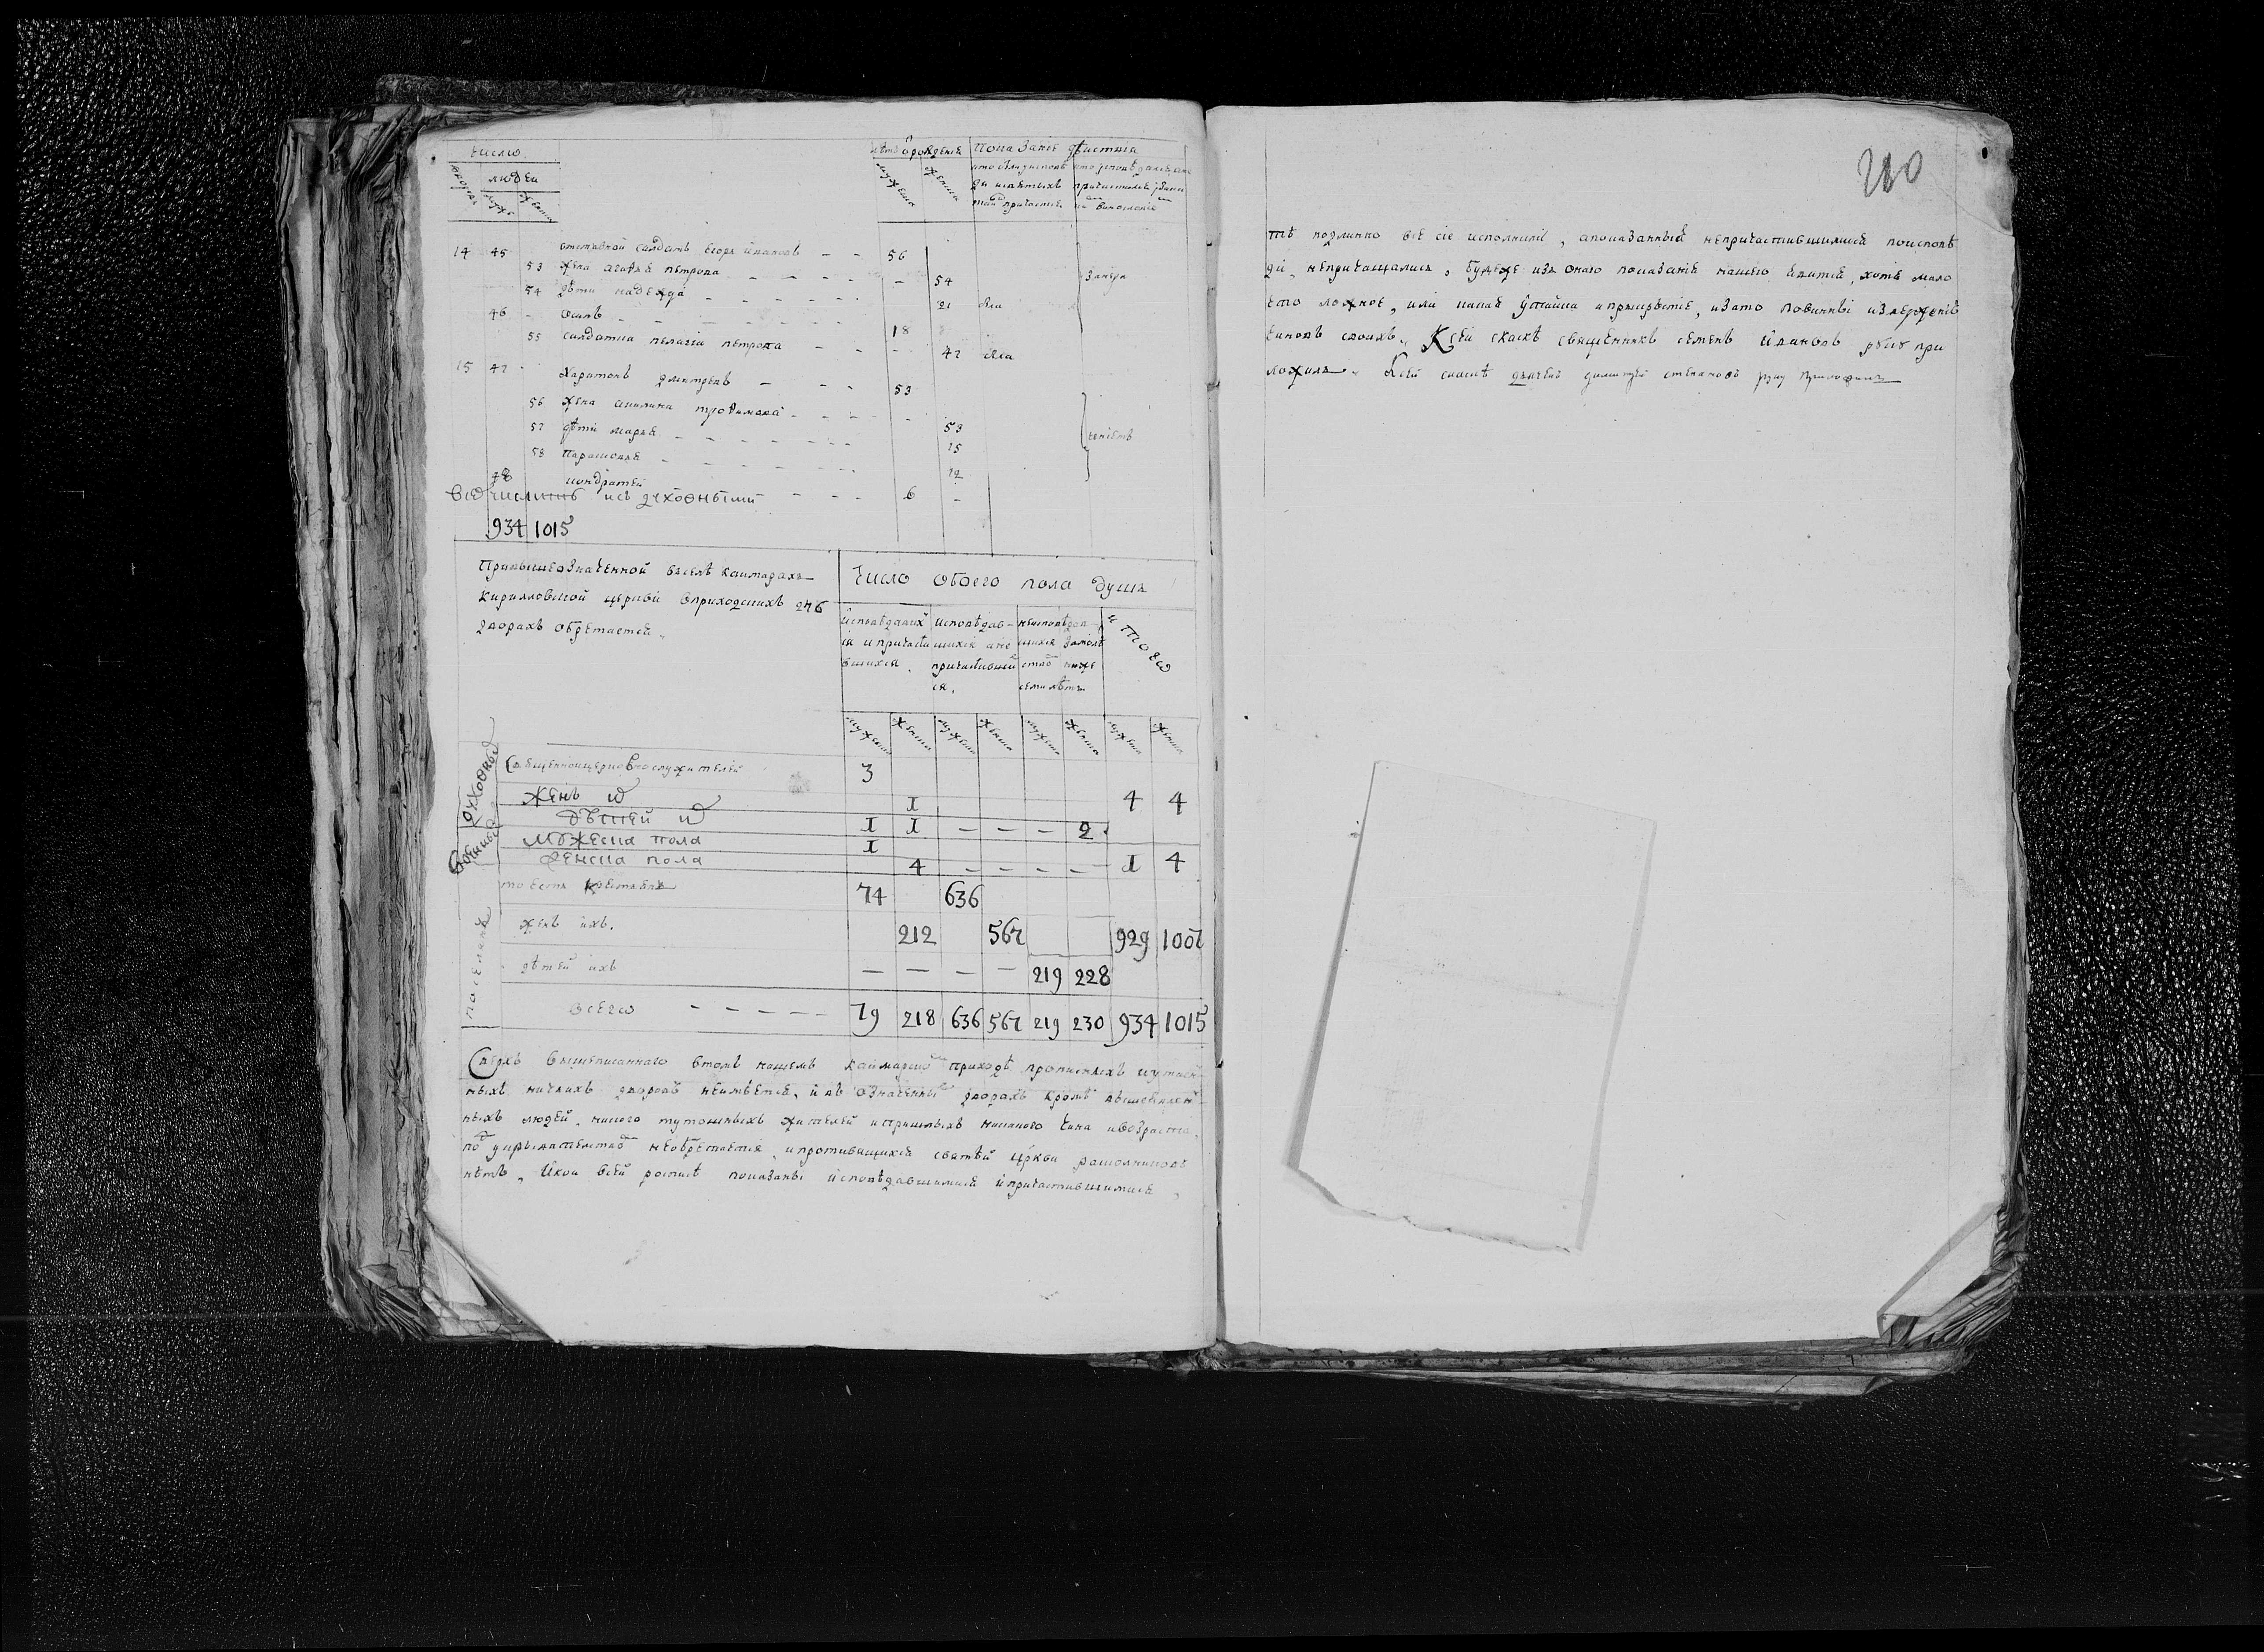 Число
людей
дворовъ
мужс
женск
Лѣта ѿ рожденїя
мужеска
женска
Показанїе дѣйства
кто былъ у исповѣ
ди и святыхъ
таинъ причастїя
14 45 отставной салдатъ егорь ївановъ - - 56
53 жена агафья петрова - - - - 54
54 дѣти надежда - - - - 21
46 - осипъ - - - - 18
55 салдатка пелагїя петрова - - - 42
15 47 харитонъ дмитреевъ - - - 53
56 жена акилина трофимова - - - - 53
57 дѣти марья - - - - 15
58 парасковья - - - - 12
48 кондратей 6 -
всѣ числомъ исъ духовными - - -
934 1015
Привышеозначенной вселѣ каимарахъ
кирилловской церкви вприходскихъ 246
дворахъ обрѣтается
Число обоего пола душъ
исповѣдавших
ся и причасти
вшихся
исповѣдав-
шихся а не
причастивши
ся
неисповѣдав-
шихся замолѣ
ством ниже
семи лѣтъ
итого
мужеска женска мужеска женска мужеска женска мужеска женска
духовныя
Священноицерковнослужителей 3
женъ их 1 4 4
дѣтей их 1 1 - - - 2
военныя
мужеска пола 1
женска пола 4 - - - - 1 4
поселяня
тоесть крестьянъ 74 636
женъ ихъ 212 567 929 1007
дѣтей ихъ - - - - 219 228
всего - - - - - 79 218 636 567 219 230 934 1015
Сверхъ вышеписаннаго втомъ нашемъ каймарском приходѣ прописныхъ иутаен-
ныхъ никакихъ дворовъ неимѣется, и въ означенных дворахъ кромѣ вышеявлен-
ныхъ людей, никого тутошныхъ жителей ипришлыхъ никакого чина ивозраста,
по укрывателству необрѣтается, ипротивящихся святѣй церкви расколниковъ
нѣтъ, Икои всей росписѣ показаны исповѣдавшимися ипричастившимися,
210
тѣ подлинно всѣ сїе исполнили, апоказанныя непричастившимися поисповѣ
ди, непричащались, будеже изъ онаго показанїя нашего явится, хотя мало
что ложное, или какая утайка иприкрытїе, изато повинны изверженїю
чиновъ своихъ. Ксей скаскѣ священникъ семенъ ївановъ руку при
ложилъ. Ксей скаскѣ дьячекъ димитрей степановъ руку приложилъ